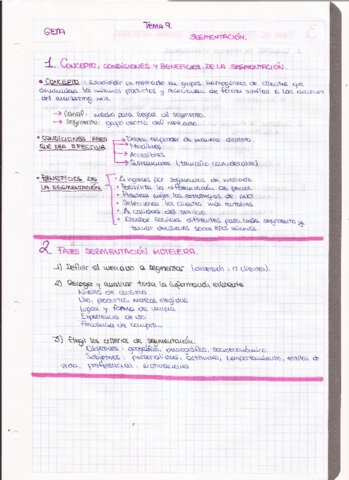 GETA
TEMA 9.
SEGMENTACIÓN.
1. CONCEPTO, CONDICIONES Y BENEFICIOS DE LA SEGMENTACIÓN.
CONCEPTO: el mercado en grupos homogéneos de clientes que
los mismos productos y de forma similar a las acciones
del marketing mix.
→ Canal: medio para llegar al segmento.
→ Segmento: grupo dentro del mercado.
CONDICIONES PARA QUE SEA EFECTIVA
→ Deben responder de manera distinta
→ Medibles
→ Accesibles
→ Sustanciales (tamaño considerable)
BENEFICIOS DE LA SEGMENTACIÓN
Ingresos por segmentos de mercado
la diferenciación de precios
mejor las estrategias de MKT
Seleccionar los clientes más rentables
calidad del servicio
Diseñar servicios diferentes para cada segmento y
tomar decisiones sobre ellos mismos
2. FASES SEGMENTACIÓN HOTELERA.
1) Definir el mercado a segmentar
2) Recoger y analizar toda la información existente
Niveles de consumo
Uso, productos, marcas elegidas
Lugar y forma de compra
Experiencia de uso
Frecuencia de compra...
3) Elegir los criterios de segmentación.
Objetivos: geográfico, demográfico, socioeconómico.
Subjetivos: personalidad, actitudes, comportamiento, estilos de
vida, preferencias, motivaciones